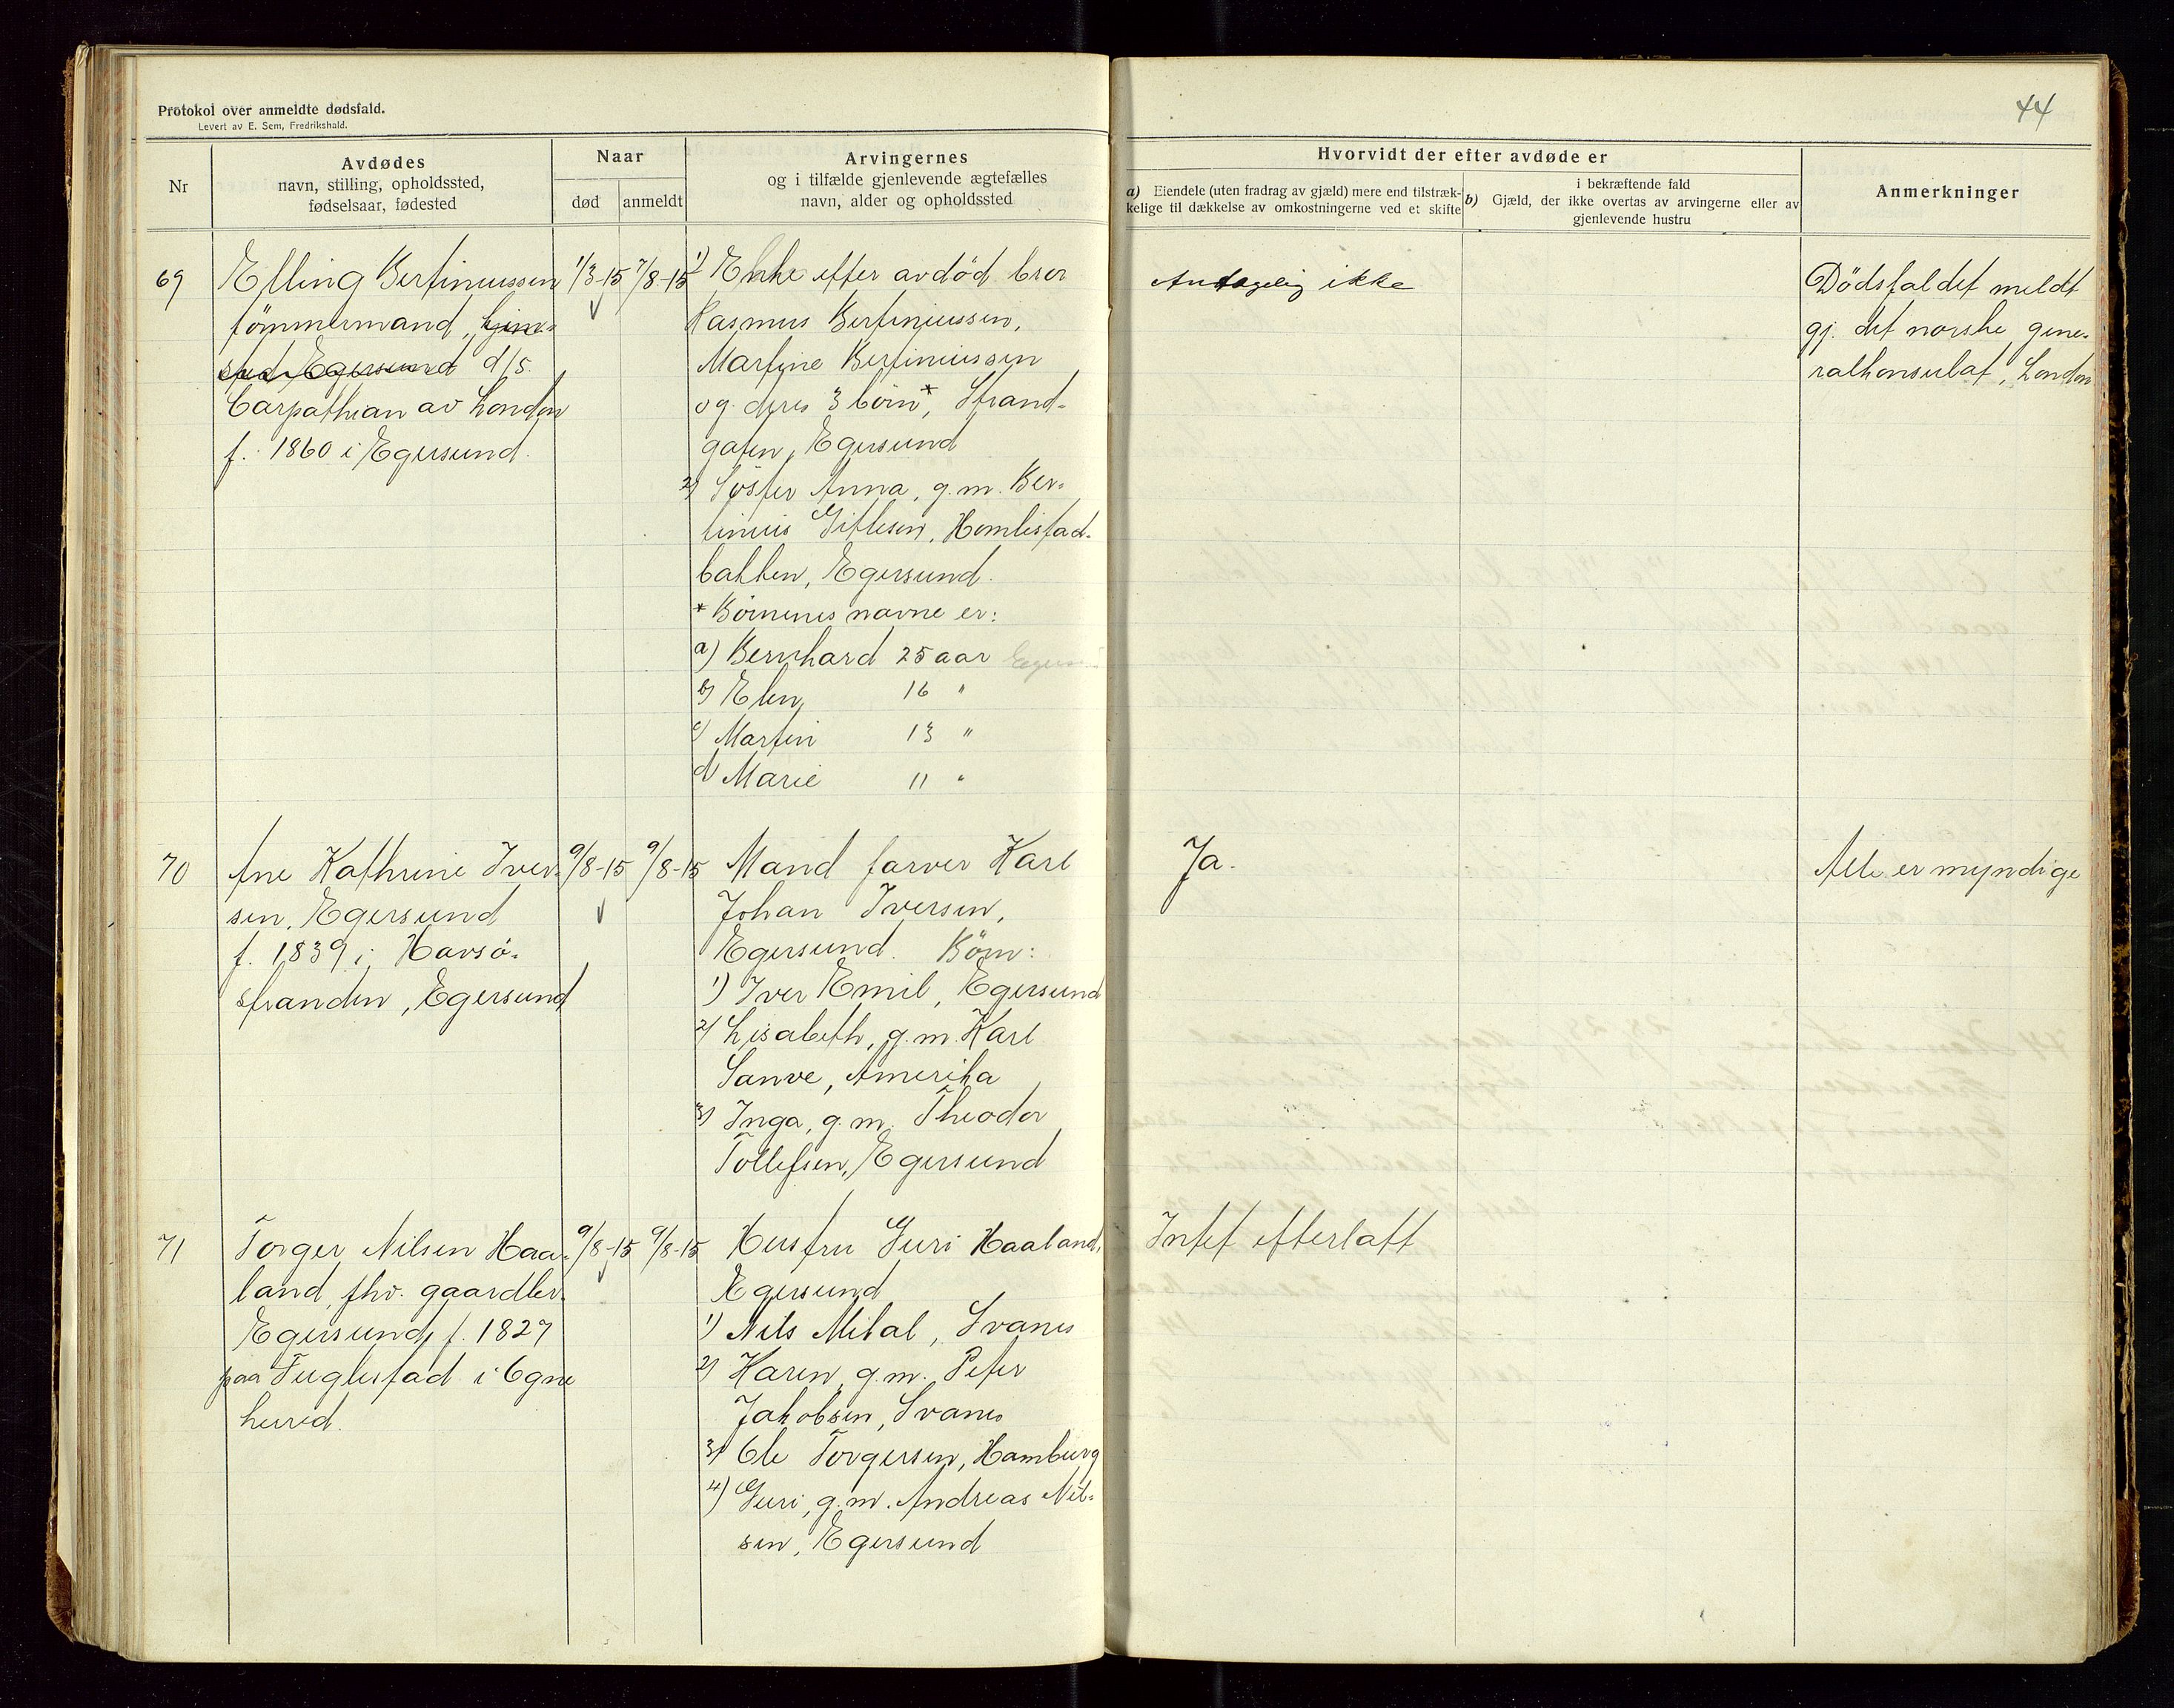 Protokol over anmeldte dødsfald.
Levert av E. Sem, Fredrikshald.
44
Nr
Avdødes
navn, stilling, opholdssted,
fødselsaar, fødested
Naar
død
anmeldt
Arvingernes
og i tilfælde gjenlevende ægtefælles
navn, alder og opholdssted
Hvorvidt der efter avdøde er
a) Eiendele (uten fradrag av gjæld) mere end tilstræk-
kelige til dækkelse av omkostningerne ved et skifte
i bekræftende fald
b) Gjæld, der ikke overtas av arvingerne eller av
gjenlevende hustru
Anmerkninger
69
Elling Bertiniussen
tömmermand, hjem-
sted Egersund d/s.
Carpathian av London
f. 1860 i Egersund.
1/3-15
7/8-15
1) Enke efter avdød bror
Rasmus Bertiniussen,
Martine Bertiniussen
og deres 3 börn*, Strand-
gaten, Egersund
2) Söster Anna, g.m. Ber-
tinius Gitlesen, Homlestad-
bakken, Egersund.
* Börnenes navne er:
a) Bernhard 25 aar
b) Elen, 16 "
c) Martin 13 "
d) Marie 11 "
Antagelig ikke
Dödsfaldet meldt
gj. det norske gene-
ralkonsulat, London
70
Ane Kathrine Iver-
sen, Egersund
f. 1839 i Havsö-
stranden, Egersund
9/8-15
9/8-15
Mand farver Karl
Johan Iversen,
Egersund. Börn:
1) Iver Emil, Egersund
2) Lisabeth, g.m. Karl
Sanve, Amerika
3) Inga, g.m. Theodor
Tollefsen, Egersund
Ja.
Alle er myndige
71
Torger Nilsen Haa-
land, fhv. gaardbr.
Egersund, f. 1827
paa Fuglestad i Ogne
herred.
9/8-15
9/8-15
Hustru Guri Haaland,
Egersund
1) Nils Mibal, Svanes
2) Karen, g.m. Peter
Jakobsen, Svanes
3) Ole Torgersen, Hamburg
4) Guri, g.m. Andreas Nil-
sen, Egersund
Intet efterlatt